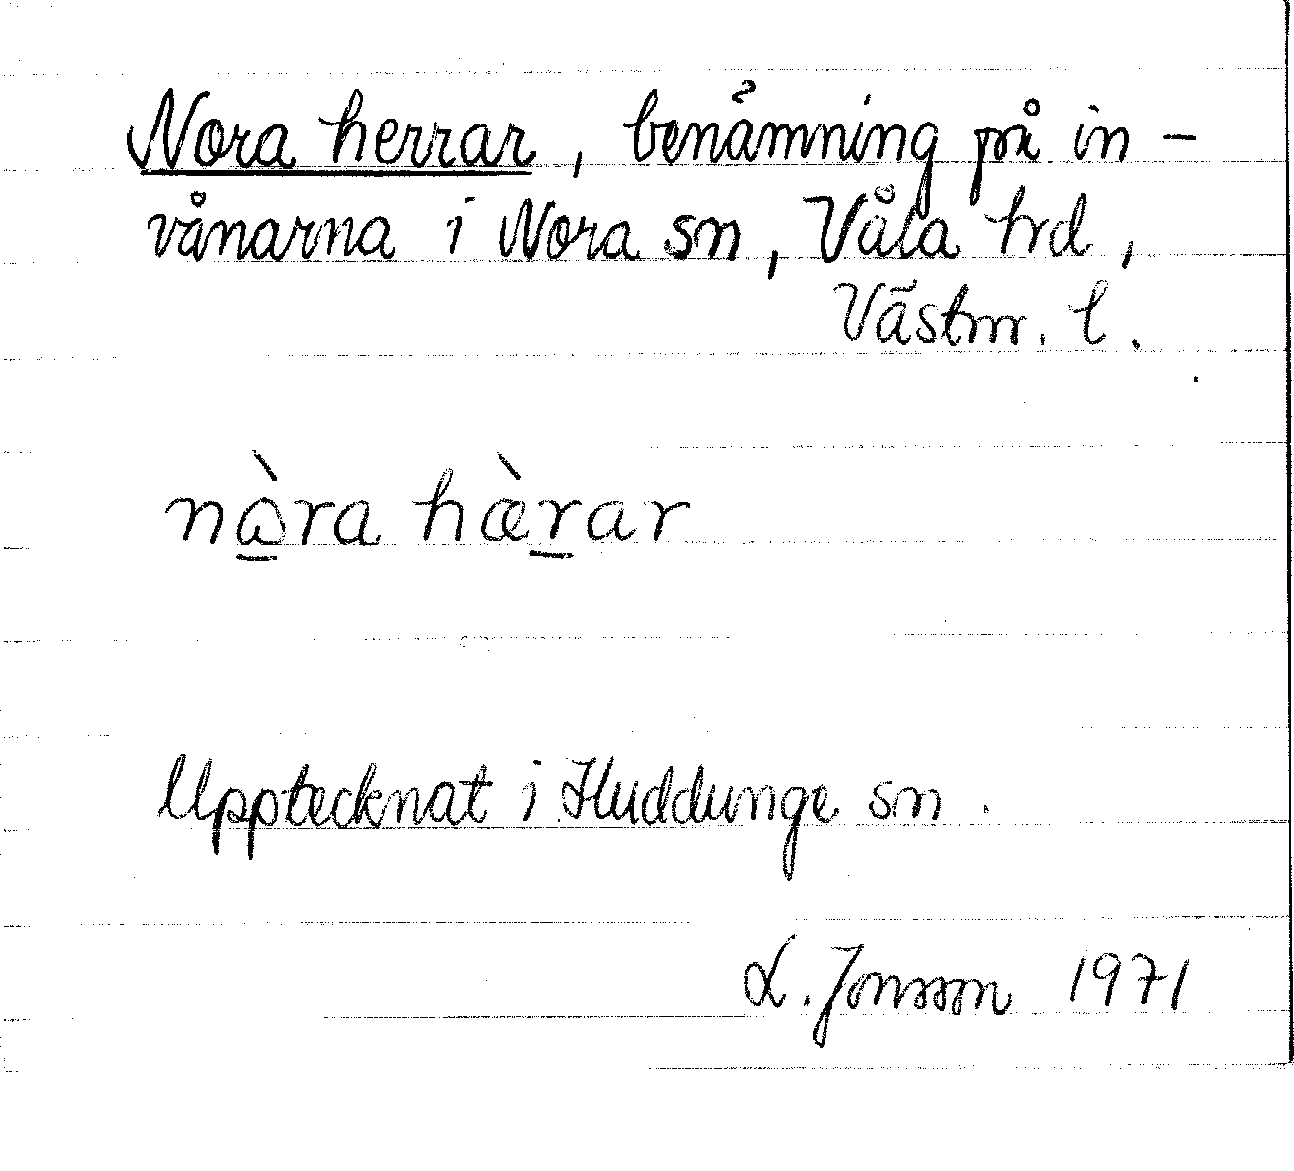 Nora herrar, benämning på in-
vånarna i Nora sn, Våla hrd,
Västm. l.
nὼra hæ̀rar
Upptecknat i Huddunge sn.
L. Jonsson 1971